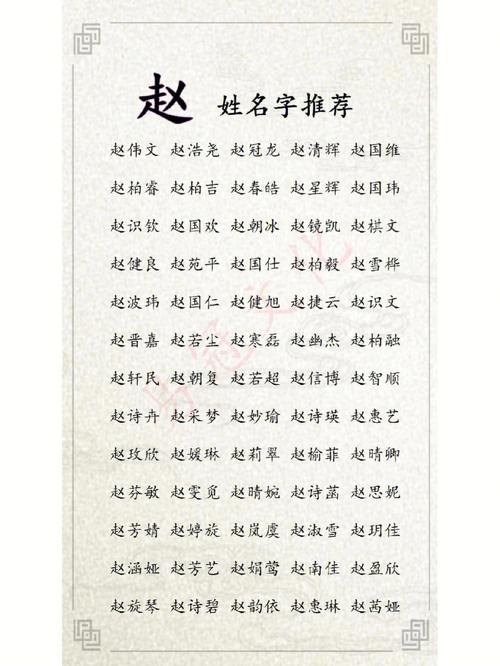 赵 姓名字推荐
赵伟文 赵浩尧 赵冠龙 赵清辉 赵国维
赵柏睿 赵柏吉 赵春皓 赵星辉 赵国玮
赵识钦 赵国欢 赵朝冰 赵镜凯 赵棋文
赵健良 赵苑平 赵国仕 赵柏毅 赵雪桦
赵波玮 赵国仁 赵健旭 赵捷云 赵识文
赵晋嘉 赵若尘 赵寒磊 赵幽杰 赵柏融
赵轩民 赵朝复 赵若超 赵信博 赵智顺
赵诗卉 赵采梦 赵妙瑜 赵诗瑛 赵惠艺
赵玫欣 赵媛琳 赵莉翠 赵榆菲 赵晴卿
赵芬敏 赵雯觅 赵晴婉 赵诗菡 赵思妮
赵芳婧 赵婷旋 赵岚虞 赵淑雪 赵玥佳
赵涵娅 赵芳艺 赵娟莺 赵南佳 赵盈欣
赵旋琴 赵诗碧 赵韵依 赵惠琳 赵茜娅